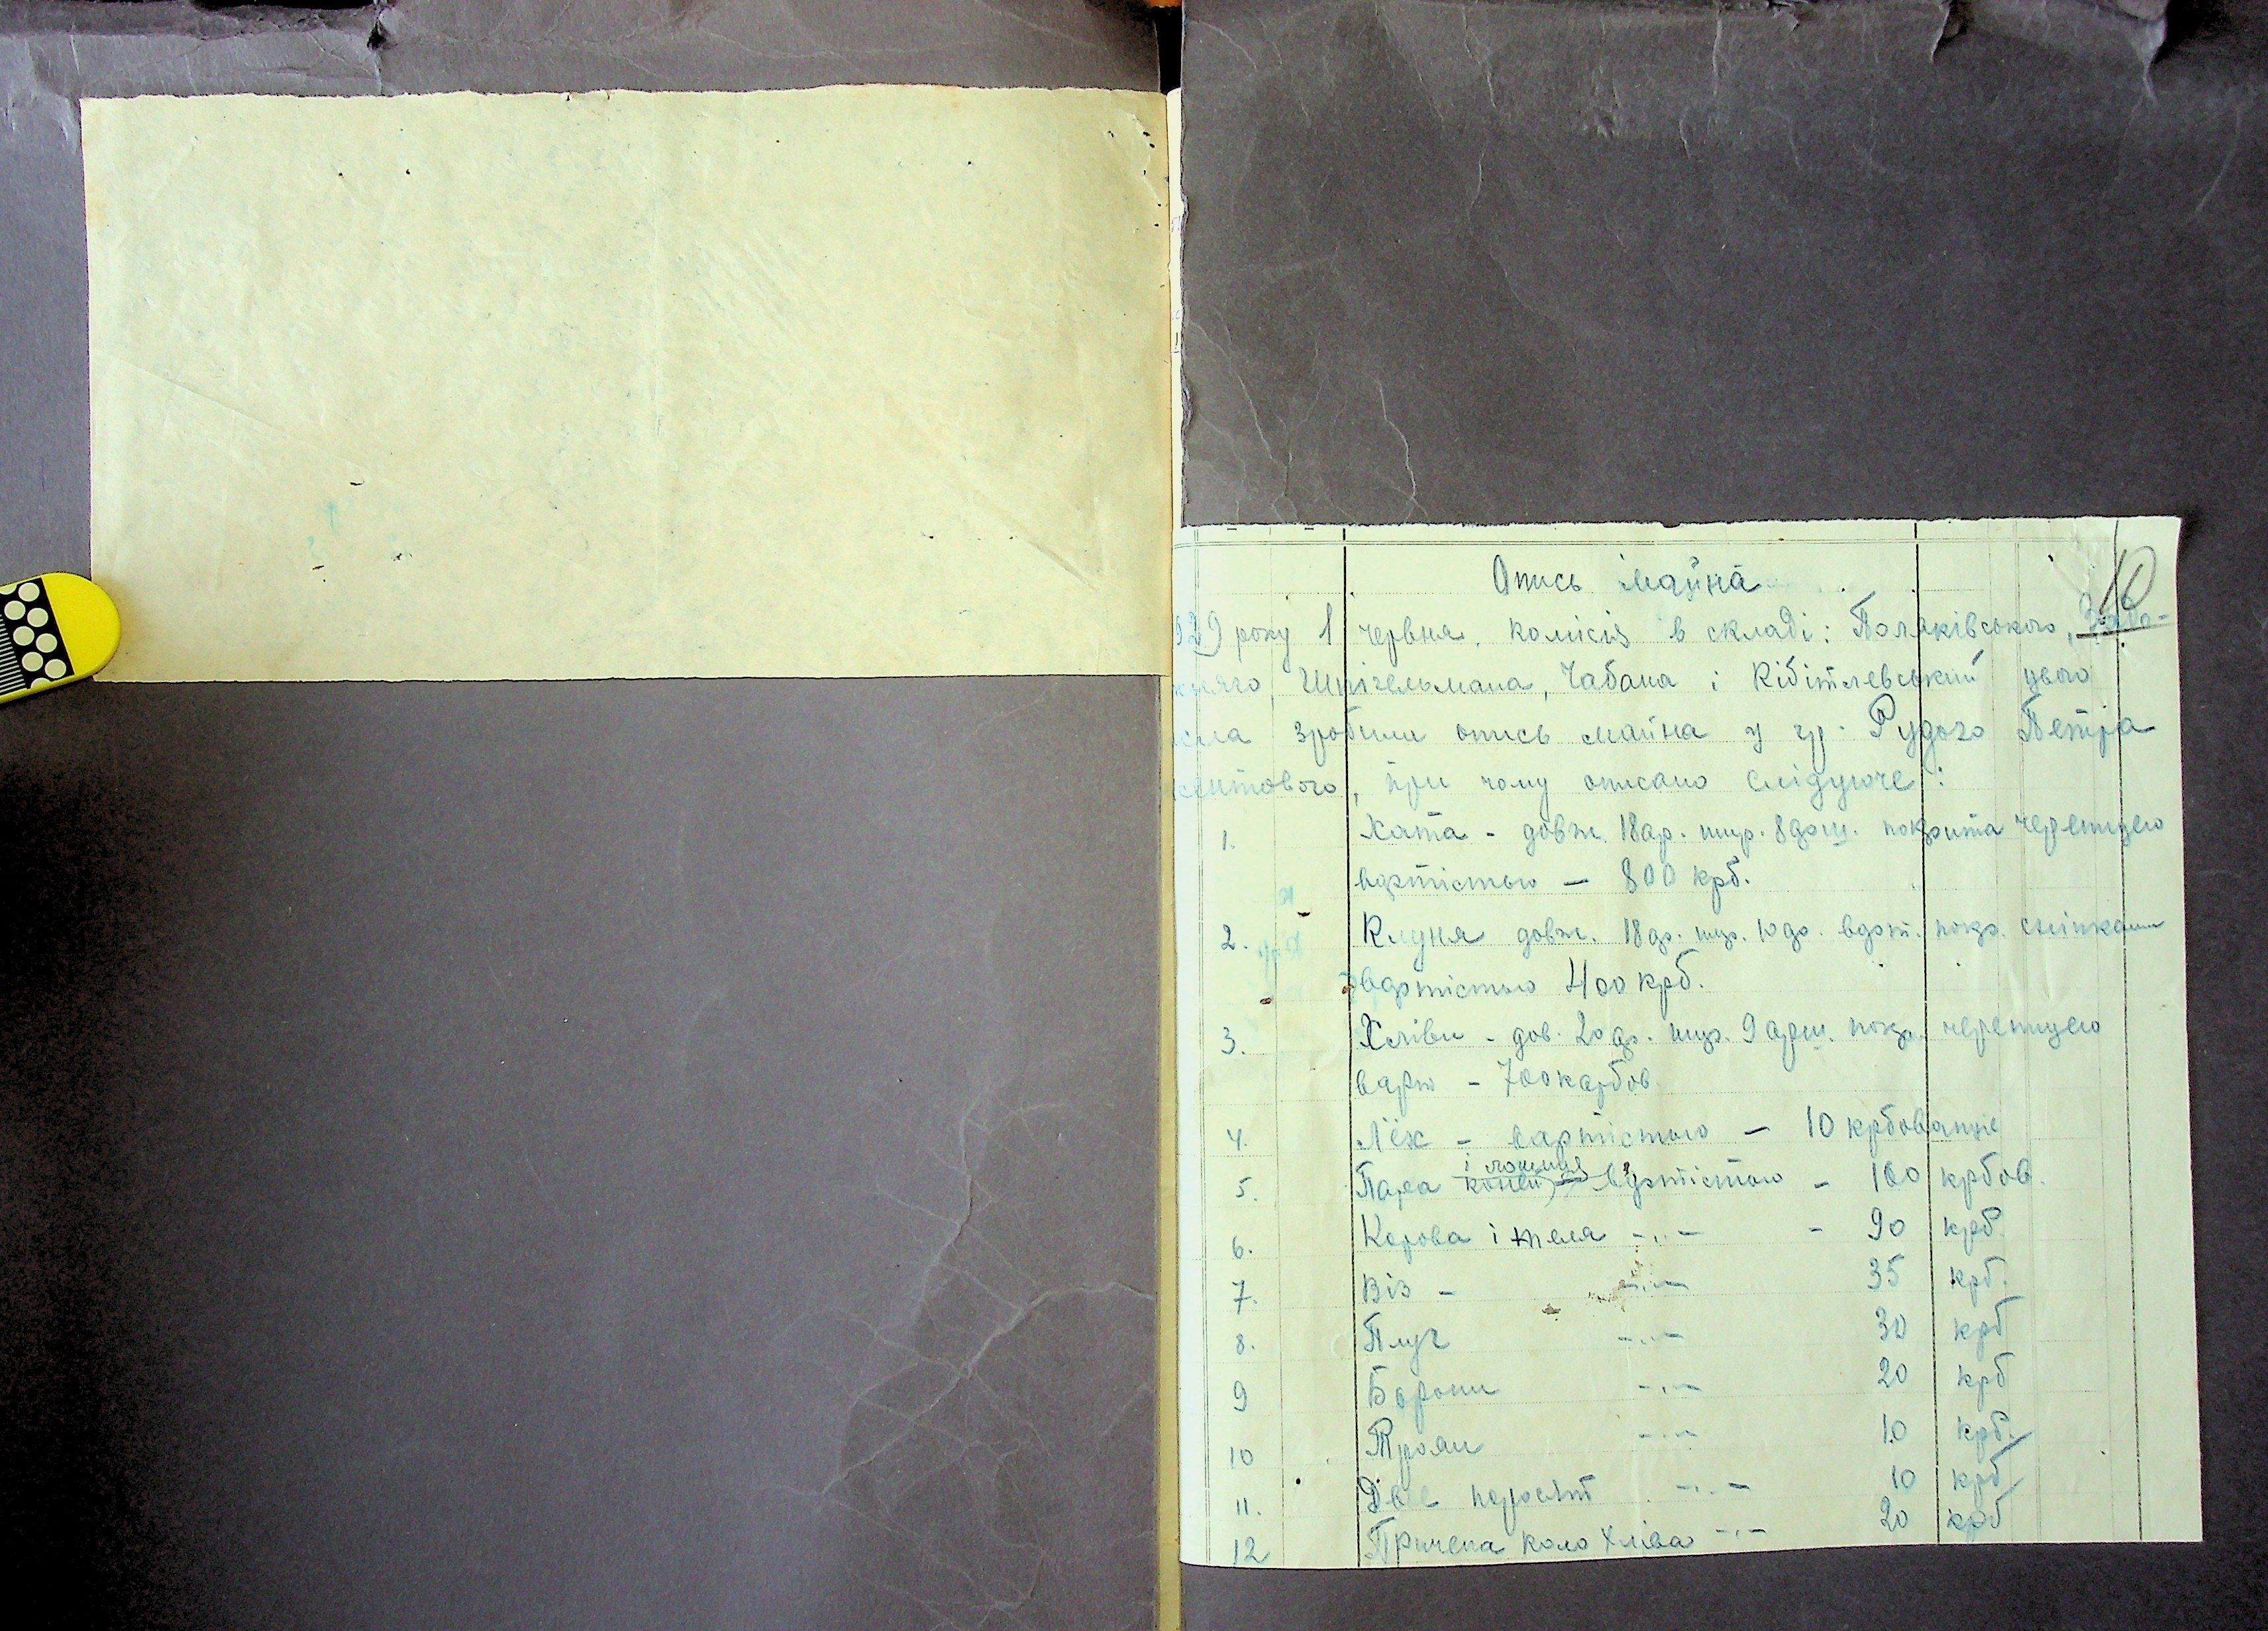 10
Опись майна
929 року 1 червня. комісія в складі: Поляківського,
Шпігельмана, Чабана і Кібітлевський цього
села зробили опись майна у гр. Рудого Петра
при чому описано слідуюче:
1. Хата - довж. 18 ар. шир. 8 арш. покрита черепицею
вартістью - 800 крб.
2. Клуня довж. 18 ар. шир. 10 ар. варт. покр. сніпками
вартістью 400 крб.
3. Хліви - дов. 20 ар. шир. 9 арш. покр. черепицею
варт - 700 карбов
4. Лёх - вартістью - 10 крбованце
і лошиця
5. Пара коней вартістью - 100 крбов.
6. Корова і теля -"- - 90 крб.
7. Віз - -"- 35 крб.
8. Плуг -"- 30 крб
9 Борони -"- 20 крб
10 Трояк -"- 10 крб.
11. Двє поросят -"- 10 крб
12 Причепа коло хліва -"- 20 крб